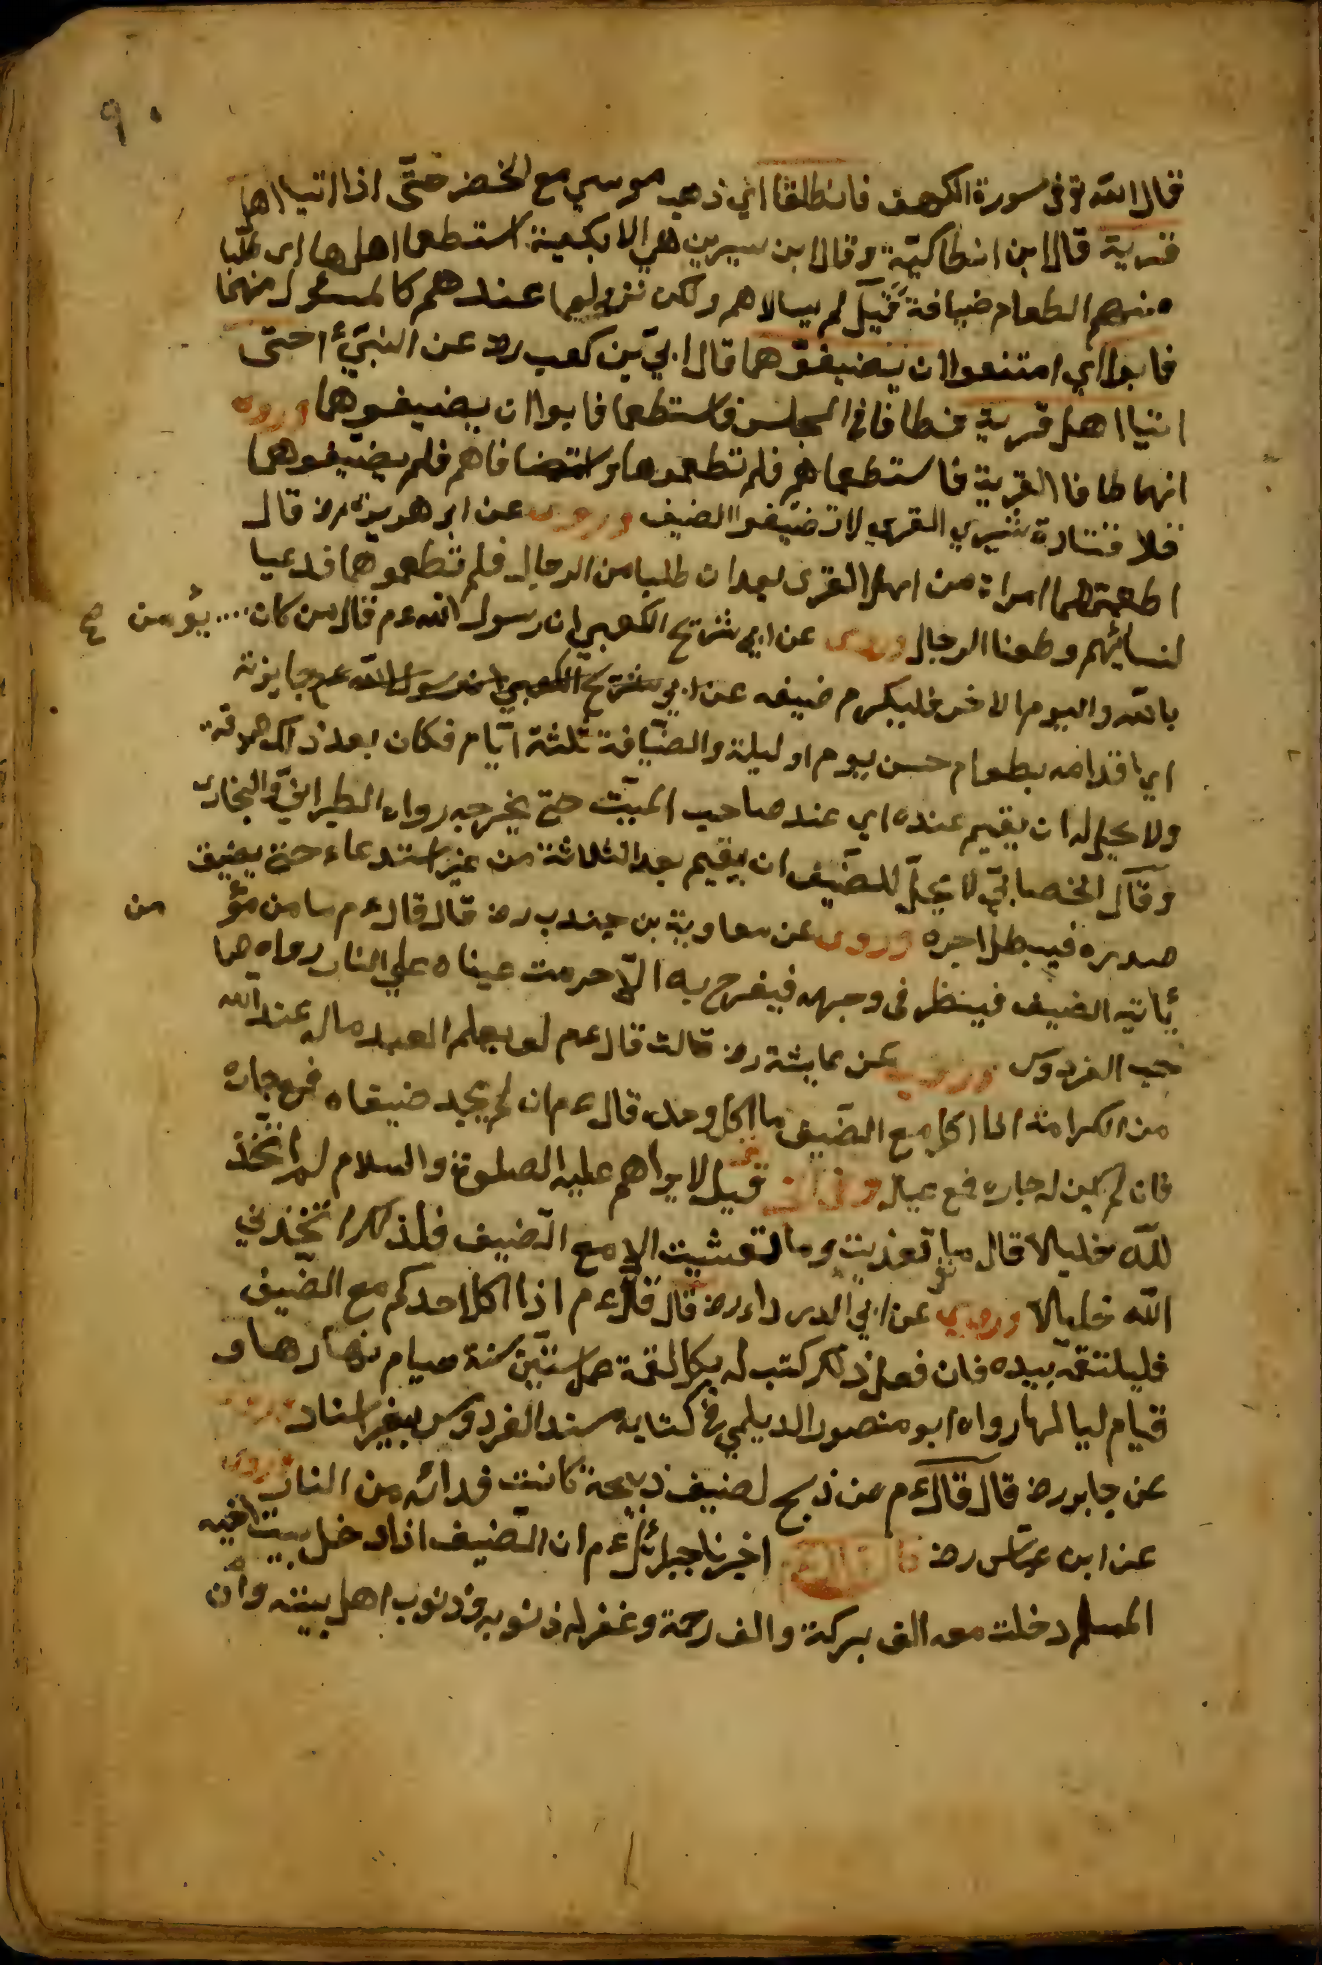 ٩٠
قال الله تع في سورة الكهف فانطلقا اي ذهب موسي مع الخضر حتّى اذا اتيا اهل
قرية قال ابن انطاكيّة وقال ابن سيرين هي الابكية استطعما اهلها اى طلبا
منهم الطعام ضيافة قيل لم يسالاهم ولكن نزولهما عندهم كالمسئول منهما
فابوا اي امتنعوا ان يّضيفوّهما قال ابيّ بن كعب رض عن النبيّ حتى
اتيا اهل قرية فطافا في المجلس فاستطعما فابوا ان يضيفوهما وروى
انهما طافا القرية فاستطعماهم فلم تطعموهما واستضافاهم فلم يضيّفوهما
قلا قتادة شر القرى لا تضيّفوا الضيف وروى عن ابى هريرة رض قال
اطعمتهما امراة من اهل القرى بعد ان طلبا من الرجال فلم تطعموهما فدعيا
لنسائهم ولعنا الرجال وروى عن ابي شريح الكعبي ان رسول الله عم قال من كان .... يؤمن صح
بالله واليوم الاخر فليكرم ضيفه عن ابي شريح الكعبي ان رسول الله عم جايزته
اي اقدامه بطعام حسن يوم او ليلة والضّيافة ثلثة ايّام فكان بعد ذالك صدقة
ولا يحل له ان يقيم عنده اي عند صاحب البيت حتي يخرجه رواه الطبرانيّ والبخارى
وقال الخصابيّ لا يحلّ للضّيف ان يقيم بعد الثلاثة من غير استدعاء حتي يضيق
صدره فيبطل اجره وروى عن معاوية بن جندب رض قال قال عم ما من مؤ من
ياتيه الضيف فينظر فى وجهه فيفرح به الّا حرمت عيناه علي النار رواه صا
حب الفردوس وروى عن عايشة رض قالت قال عم لو يعلم العبد ما له عند الله
من الكرامة اذا اكل مع الضّيف ما اكل وحده قال عم ان لم يجد ضيفاه فمع جاره
فان لم يكن له جاره فمع عياله وفي قيل لابراهم عليه الصلوة والسلام لم اتّخذ
للّه خليلا قال ما تغذيت وما تعشيت الا مع الضّيف فلذلك اتخذني
الله خليلا وروى عن ابي الدرداء رض قال قال عم اذا اكل احدكم مع الضّيف
فليلتقه بيده فان فعل ذلك كتب له بكل لقمة عمل ستّين سنة صيام نهارها و
قيام لياليها رواه ابو منصور الديلمي في كتابه مسند الفردوس بغير اسناد وروى
عن جابر رض قال قال عم من ذبح لضيف ذبيحة كانت فدائه من النار وروى
عن ابن عبّاس رض اخبرنا جبرائل عم ان الضّيف اذا دخل بيت اخيه
المسلم دخلت معه الف بركة والف رحمة وغفر له ذنوبه وذنوب اهل بيته وان